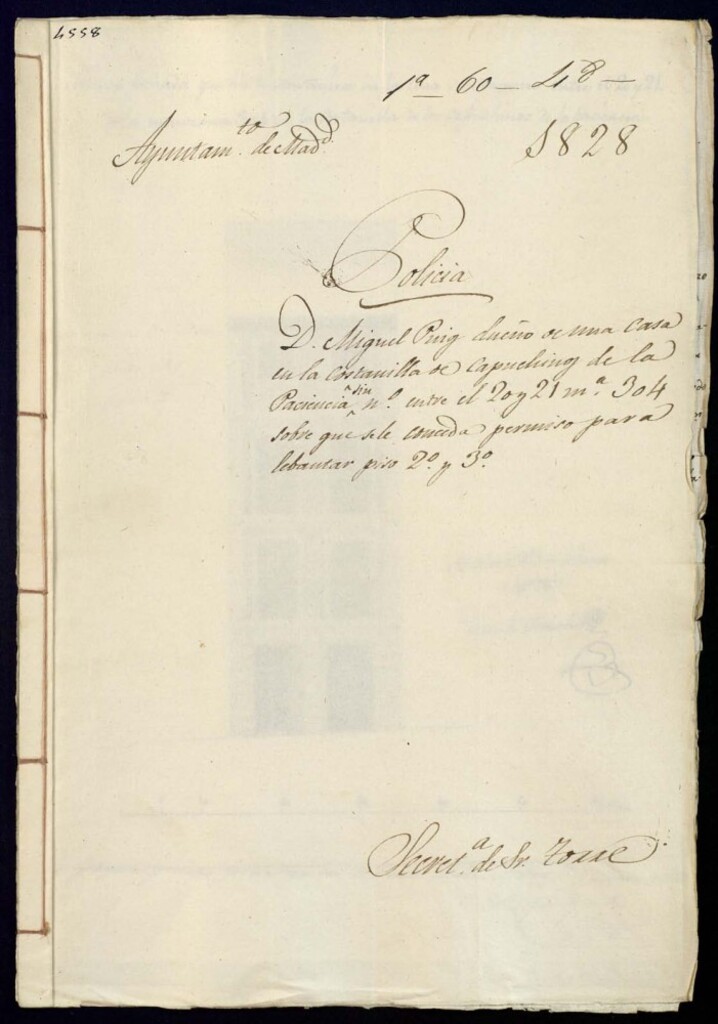 4557
1ª - 60 - 48 -
Ayuntam.to de Madd.
1828
Policia
D. Miguel Puig dueño de una casa
en la costanilla de capuchinos de la
Paciencia ^sin n.º entre el 20 y 21 m.ª 304
sobre que se le conceda permiso para
lebantar piso 2.º y 3.º
Secret.ª de Sr. Torre